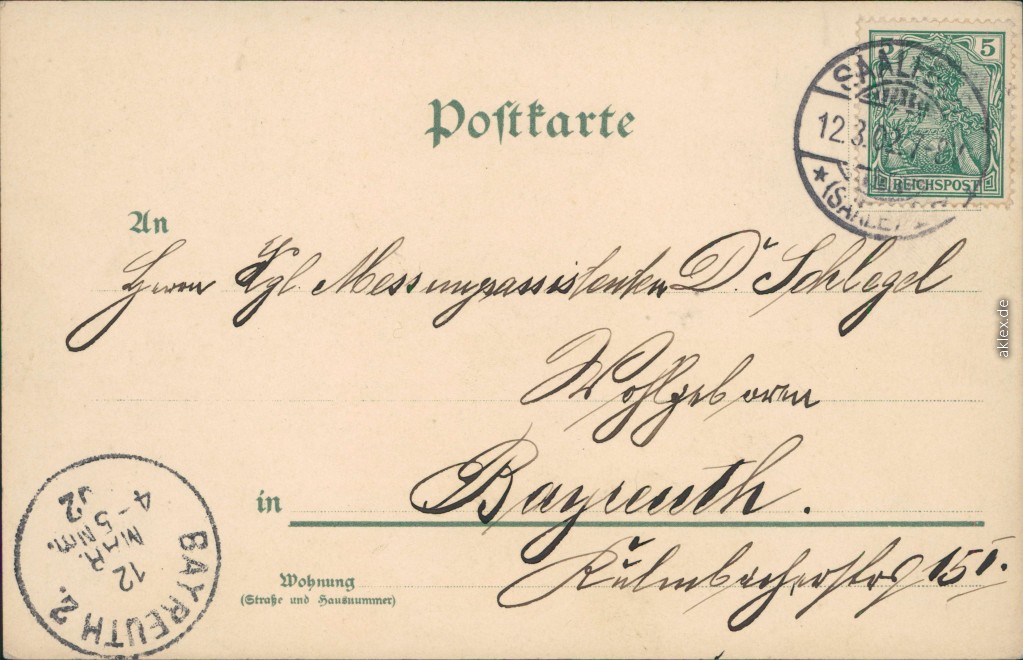 Postkarte
5
REICHSPOST
SAALFE
12.3.02.7-8
(SAALE)
An
Herrn Kgl. Messungsassistenten Dr. Schlegel
Wohlgeboren
in Bayreuth.
Wohnung
(Straße und Hausnummer)
Kulmbacherstrs 15 I.
BAYREUTH 2.
12
MAR.
4-5 Nm.
02
aklex.de